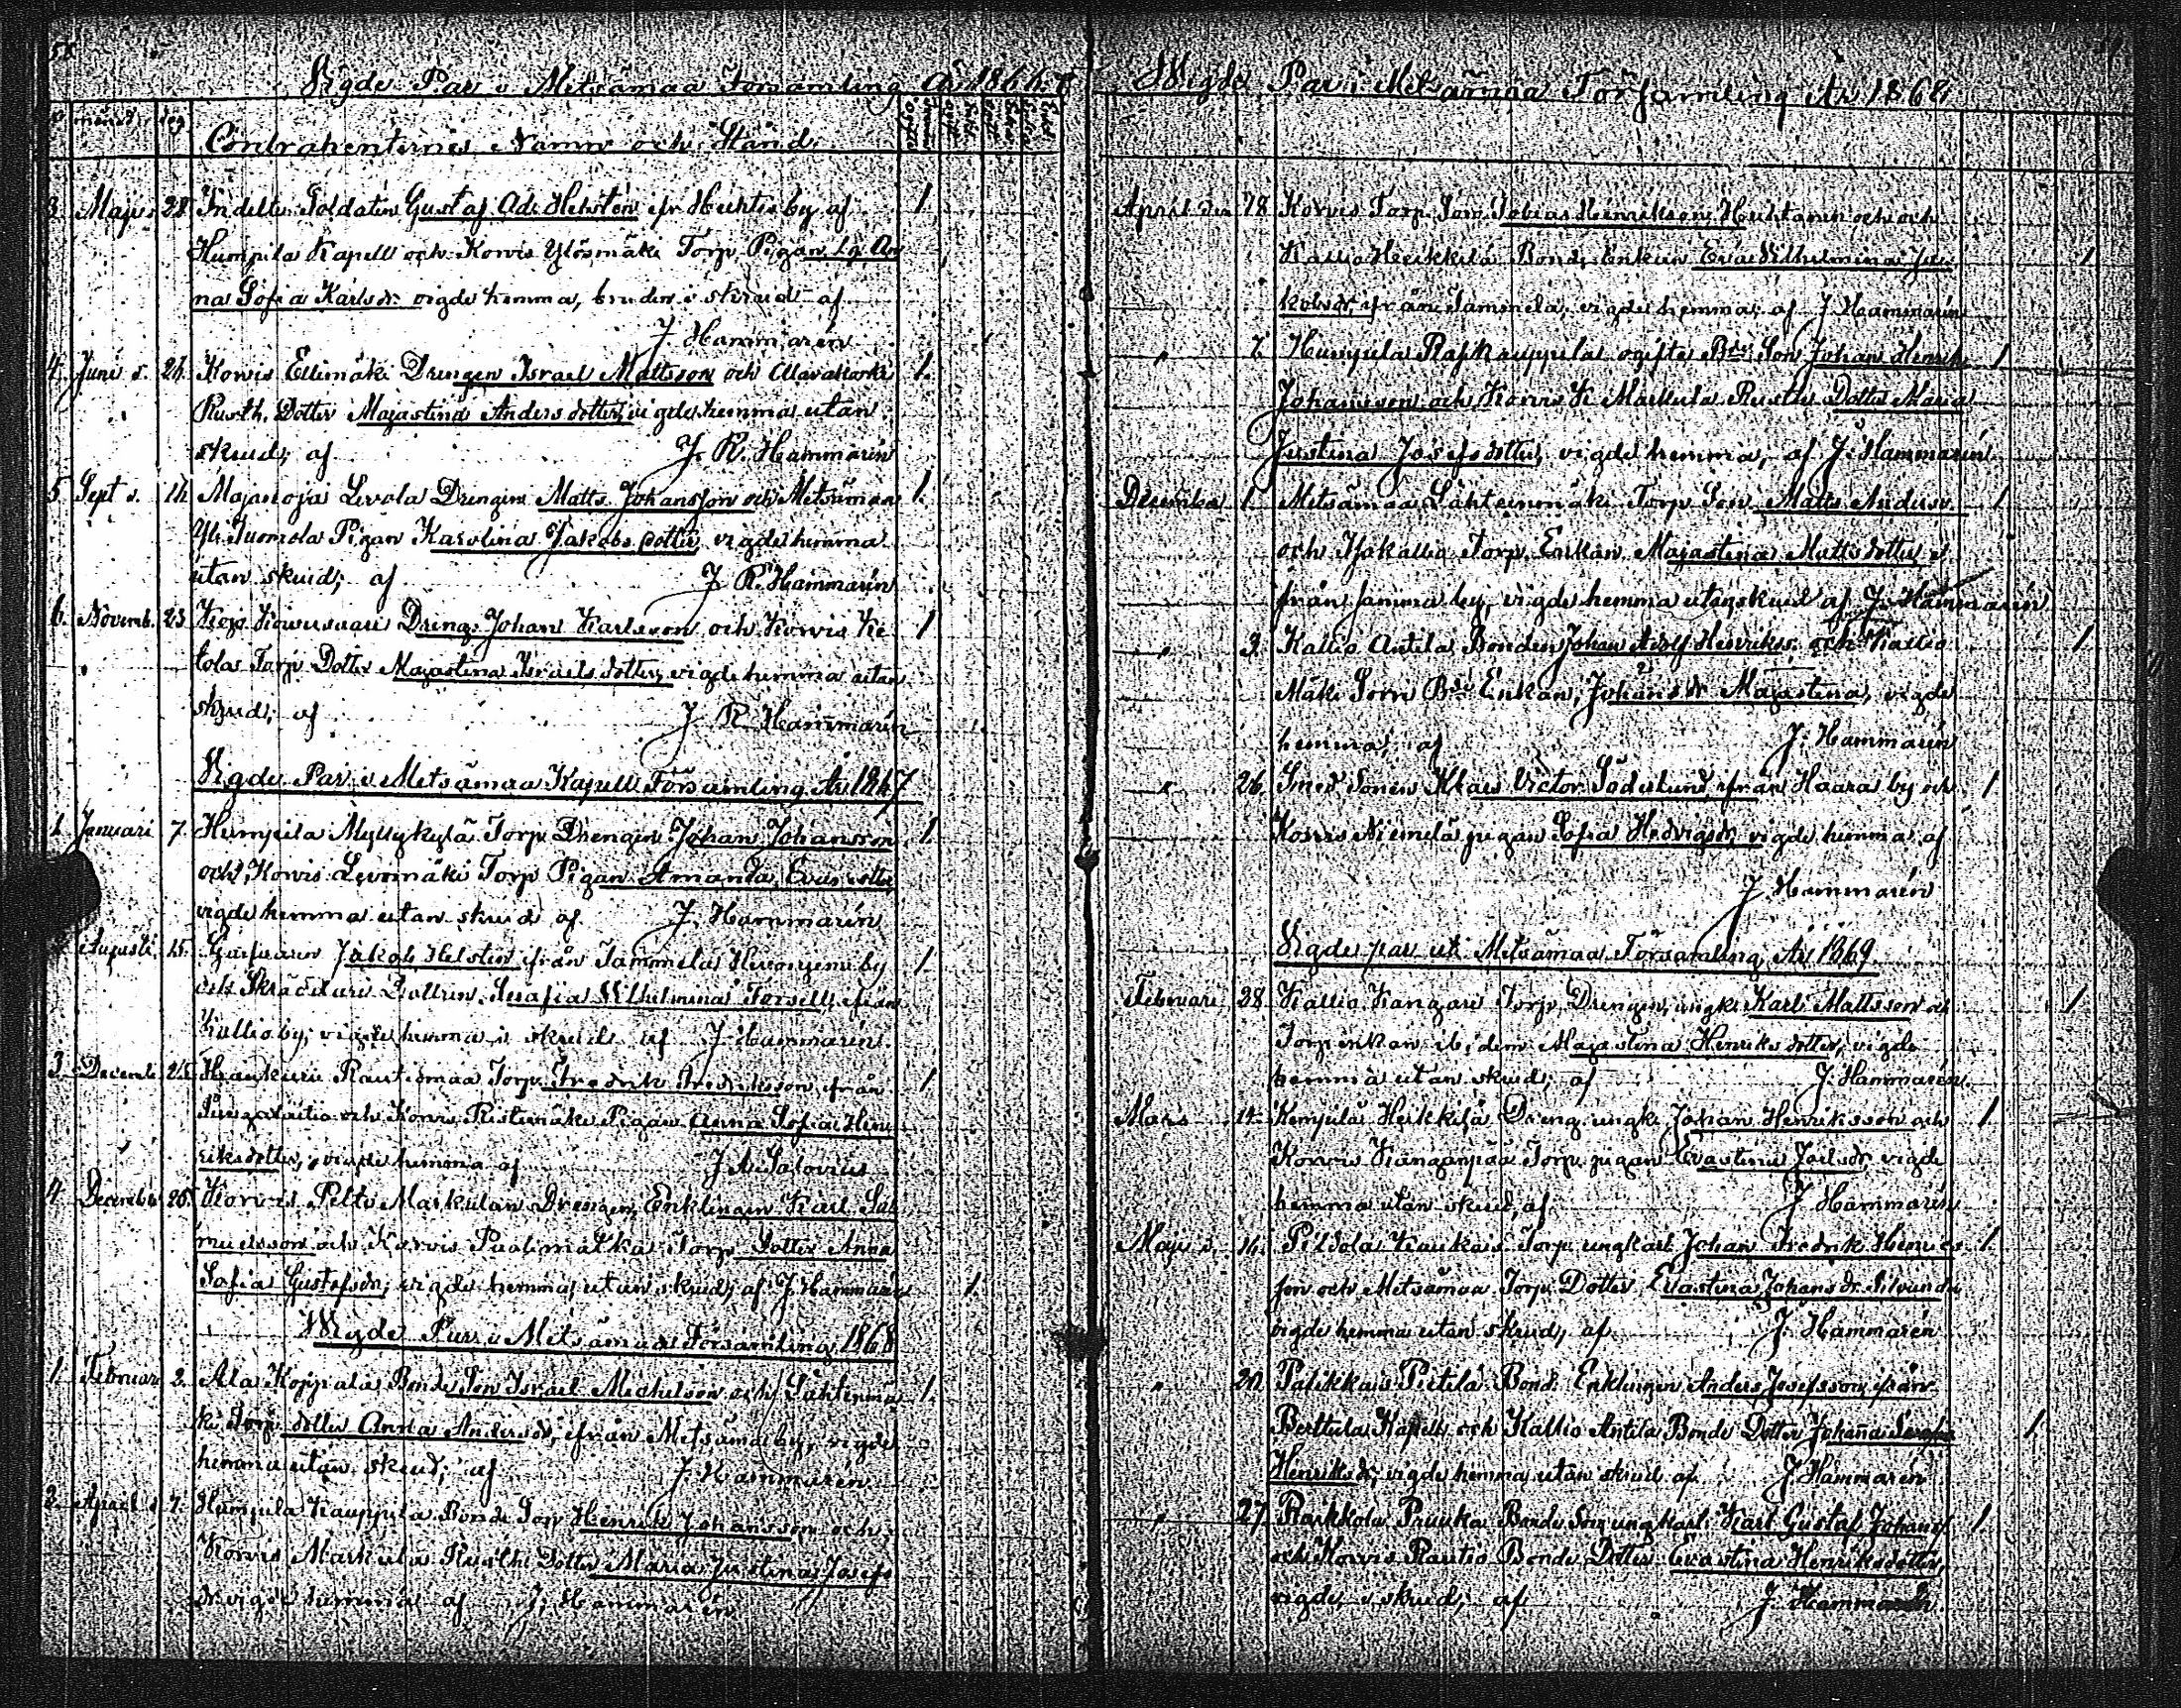 58
Vigde Par i Metsämaa Församling År 1866
månad dag
Contrahenternes Namn och Stånd
3. Maji 28 Indelta Soldaten Gustaf Ad. Helsten ifr. by af 1.
Humpila Kapell och Korvis Torp Pigan An
na Sofia Karlsdr. vigde hemma, bruden i skrud af
J Hammarén
4. Juni d. 24. Korvis Ellimäki Drengen Israel Mattsson och 1.
Rusth. Dotter Majastina Andersdotter, vigde hemma utan
skrud; af J. R. Hammarén
5 Sept d. Majanoja Levola Drengen Matts Johansson och Metsämaa 1.
Yli Tuomola Pigan Karolina Jakobs dotter vigde hemma
utan skrud; af J R. Hammarén
6. Novemb. 23 Kojo Dreng. Johan Karlsson och Korvis Ki 1
tola Torp Dotter Majastina Israels dotter, vigde hemma utan
skrud; af J R Hammarén
Vigde Par i Metsämaa Kapell Församling År 1867
1 Januari 7. Humpila Myllykylä Torp Drengen Johan Johansson 1.
och Korvis Levomäki Torp Pigan Amanda Evas dotter
vigde hemma utan skrud af J. Hammarén
Augusti. 15. Garfvaren Jakob Helsten ifrån Tammela by 1
och Skräddare Dottren Serafia Vilhelmina Forsell, ifrån
Kallio by, vigde hemma i skrud af J. Hammarén.
3 Decemb. Rautiomaa Torp. Fredrik Fredriksson ifrån 1
och Korvis Ristimäki Pigan Anna Sofia Hen
riksdotter, vigde hemma af J A Salovius
4 December 26. Korvis Pelto Markulan Drengen, Enklingen Karl Sa
muelsson och Korvis Torp Dotter Anna
Sofia Gustafsdr, vigde hemma utan skrud, af J. Hammarén 1.
Vigde Par i Metsämaa Församling 1868
1. Februari 2. Ala Koppala Bonde Son Israel Michelsson och Lähtenmä 1.
ki Torp dotter Anna Andersdr, ifrån Metsämaa by, vigde
hemma utan skrud; af J. Hammarén
2. April d. 7. Humpila Kauppila Bonde Son Henrik Johansson och
Korvis Markula Rusth. Dotter Maria Justina Josefs
dr vigde hemma af J. Hammarén
Vigde Par i Metsämaa Församling År 1868
April den Korvis Torp. Son Tobias Henriksson och
Kallio Heikkilä Bonde Enkan Eva Vilhelmina Ja 1
kobsdr, ifrån Tammela, vigde hemma; af J Hammarén
" 7. Humpila ogifte Bde Son Johan Henrik 1
Johansson och Korvis Markula Rusth. Dotter Maria
Justina Josefsdotter, vigde hemma, af J. Hammarén
December 1 Metsämaa Lähteinmäki Torp Son Matts Anderss. 1
och Isokallio Torp. Enkan Majastina Matts dotter
från samma by, vigde hemma utan skrud af J. Hammarén
" 3. Kallio Antila Bonden Johan Adolf Henrikss. och Kallio 1.
Mäki Bde Enkan, Johansdr Majastina, vigde
hemma; af J. Hammarén
" 26. Smed Sonen Klaes Victor Söderlund, ifrån Haara by och 1
Korvis Niemelä pigan Sofia Hedvigsdr, vigde hemma, af
J. Hammarén
Vigde par uti Metsämaa Församling År 1869
Februari 28 Kallio Kangari Torp. Drengen, ungk. Karl Mattsson och 1
Torp enkan ibidem Majastina Henriks dotter, vigde
hemma utan skrud; af J. Hammarén.
Mars 14. Heikkilä Dreng. ungk. Johan Henriksson och 1
Korvis Kanganpää Torp. pigan Evastina Joelsdr, vigde
hemma utan skrud, af J Hammarén
Maji d. 16. Torp ungkarl Johan Fredrik Henriks 1.
son och Metsämaa Torp. Dotter Evastina Johansdr
vigde hemma utan skrud, af J. Hammarén
" 20. Palikkais Pietilä Bond. Enklingen Anders Josefsson, ifrån
Berttula Kapell och Kallio Antila Bonde Dotter Johanna 1
Henriksdr, vigde hemma utan skrud af J Hammarén
" 27. Raikkola Bonde Son ungkarl Karl Gustaf Johanss 1
och Korvis Rautio Bonde Dotter Evastina Henriksdotter,
vigde i skrud; af J Hammarén